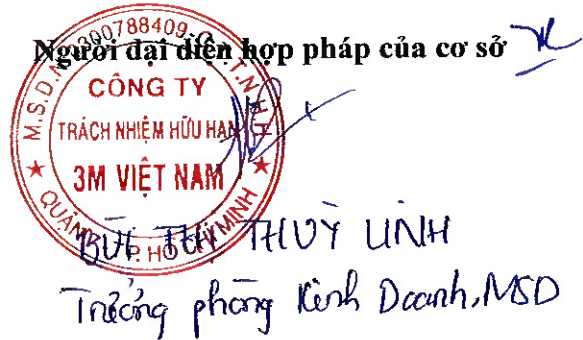 Người đại diện hợp pháp của cơ sở
M.S.D.N: 0300788409 - C.T.T.N.H.H
CÔNG TY
TRÁCH NHIỆM HỮU HẠN
3M VIỆT NAM
QUẬN P. HỒ CHÍ MINH
BÙI THỊ THUỲ LINH
Trưởng phòng Kinh Doanh, MSD